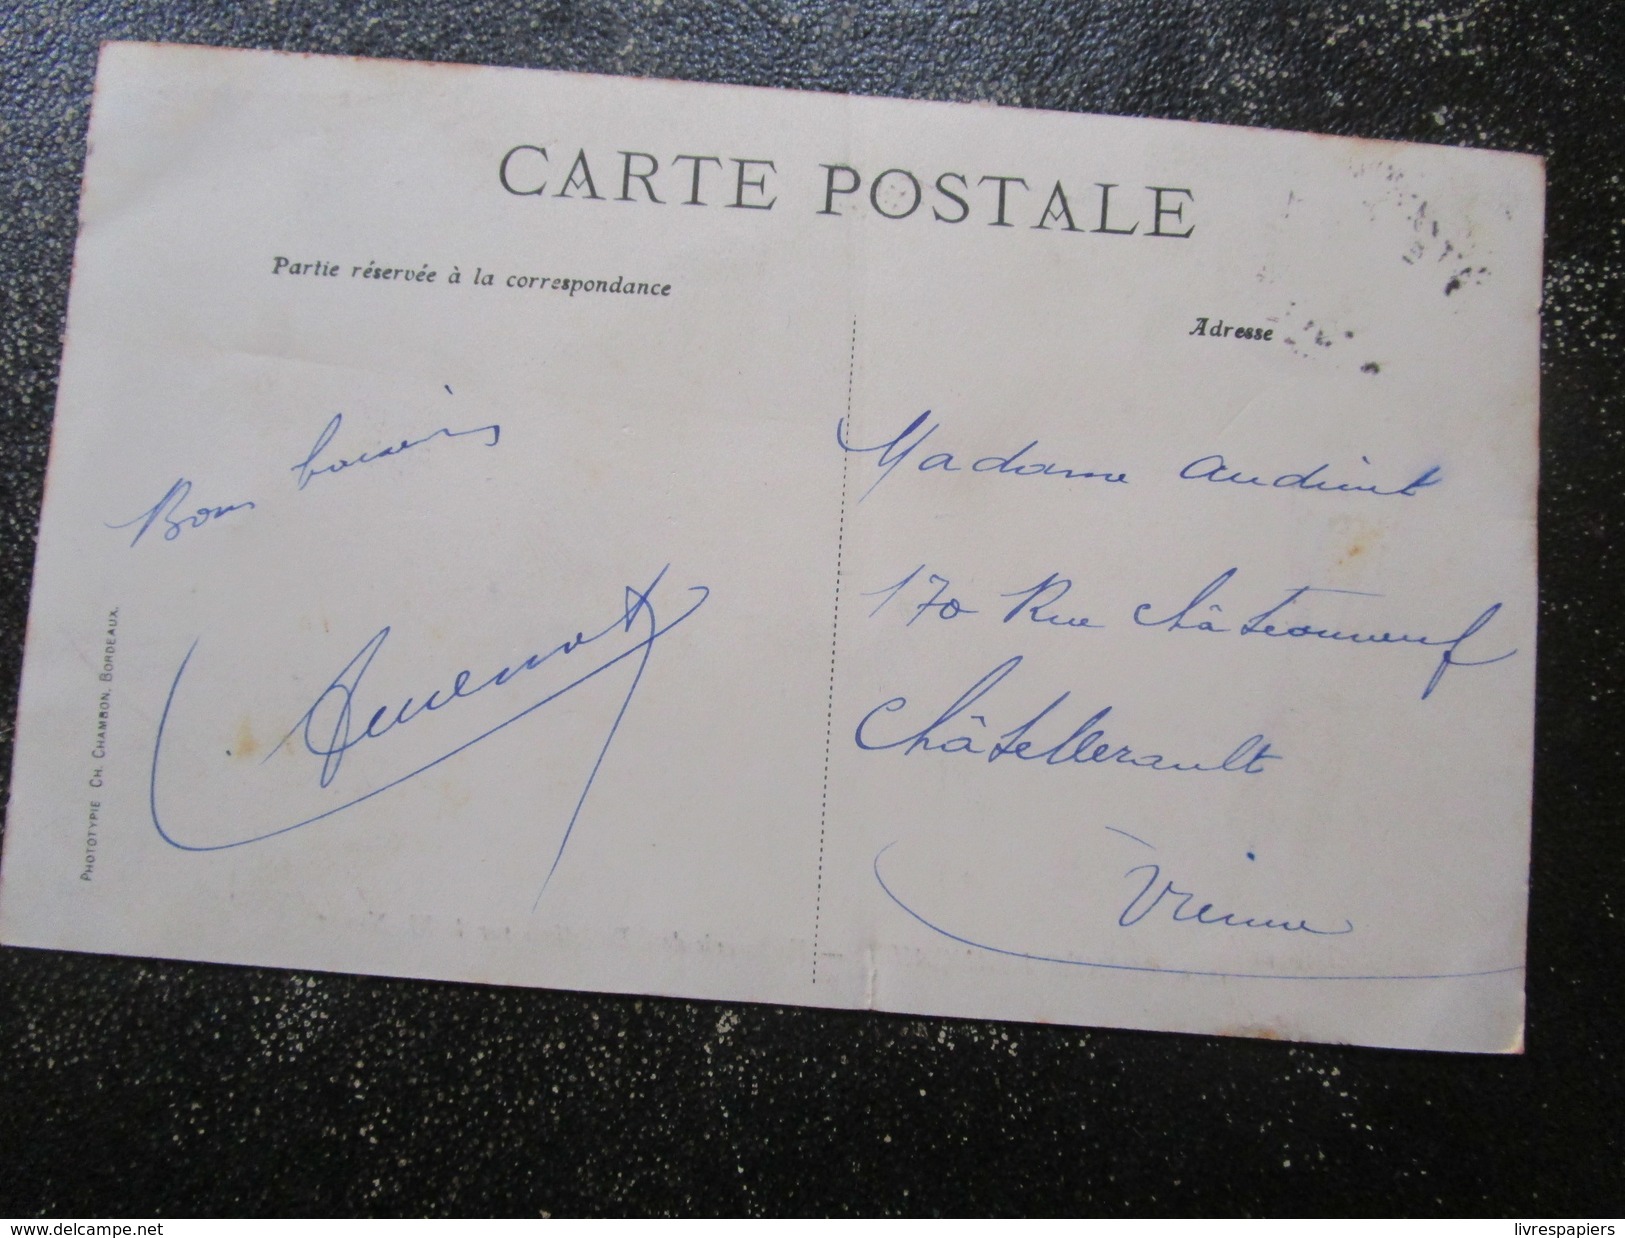 CARTE POSTALE
Partie réservée à la correspondance
Adresse
Bons baisers
Madame Audinet
170 Rue Châteauneuf
Châtellerault
Vienne
PHOTOTYPIE CH. CHAMBON, BORDEAUX.
delcampe.net
livrespapiers